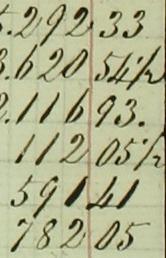 5.292 33
3.620 54½
2.116 93.
112 05½
591 41
782 05